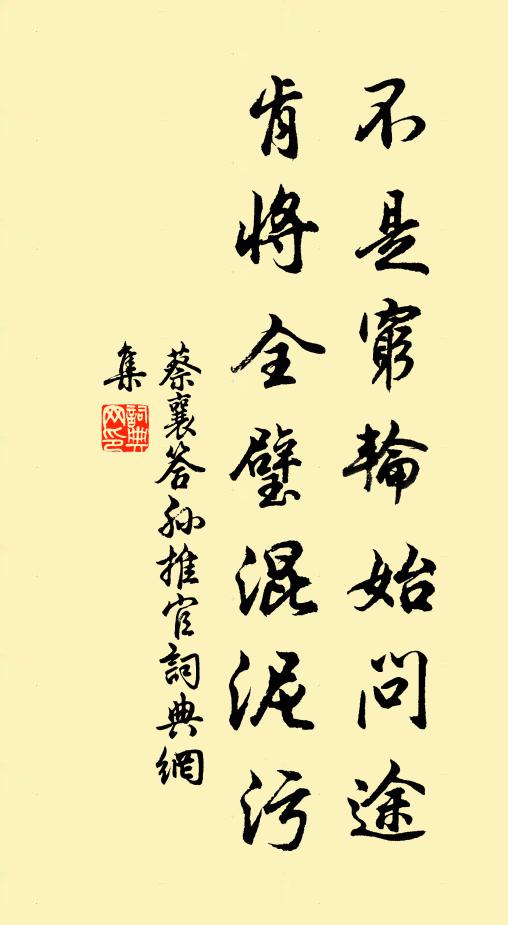 不是窮輪始問途
肯將全璧混泥污
蔡襄答孙推官詞典網
集
詞典
网印